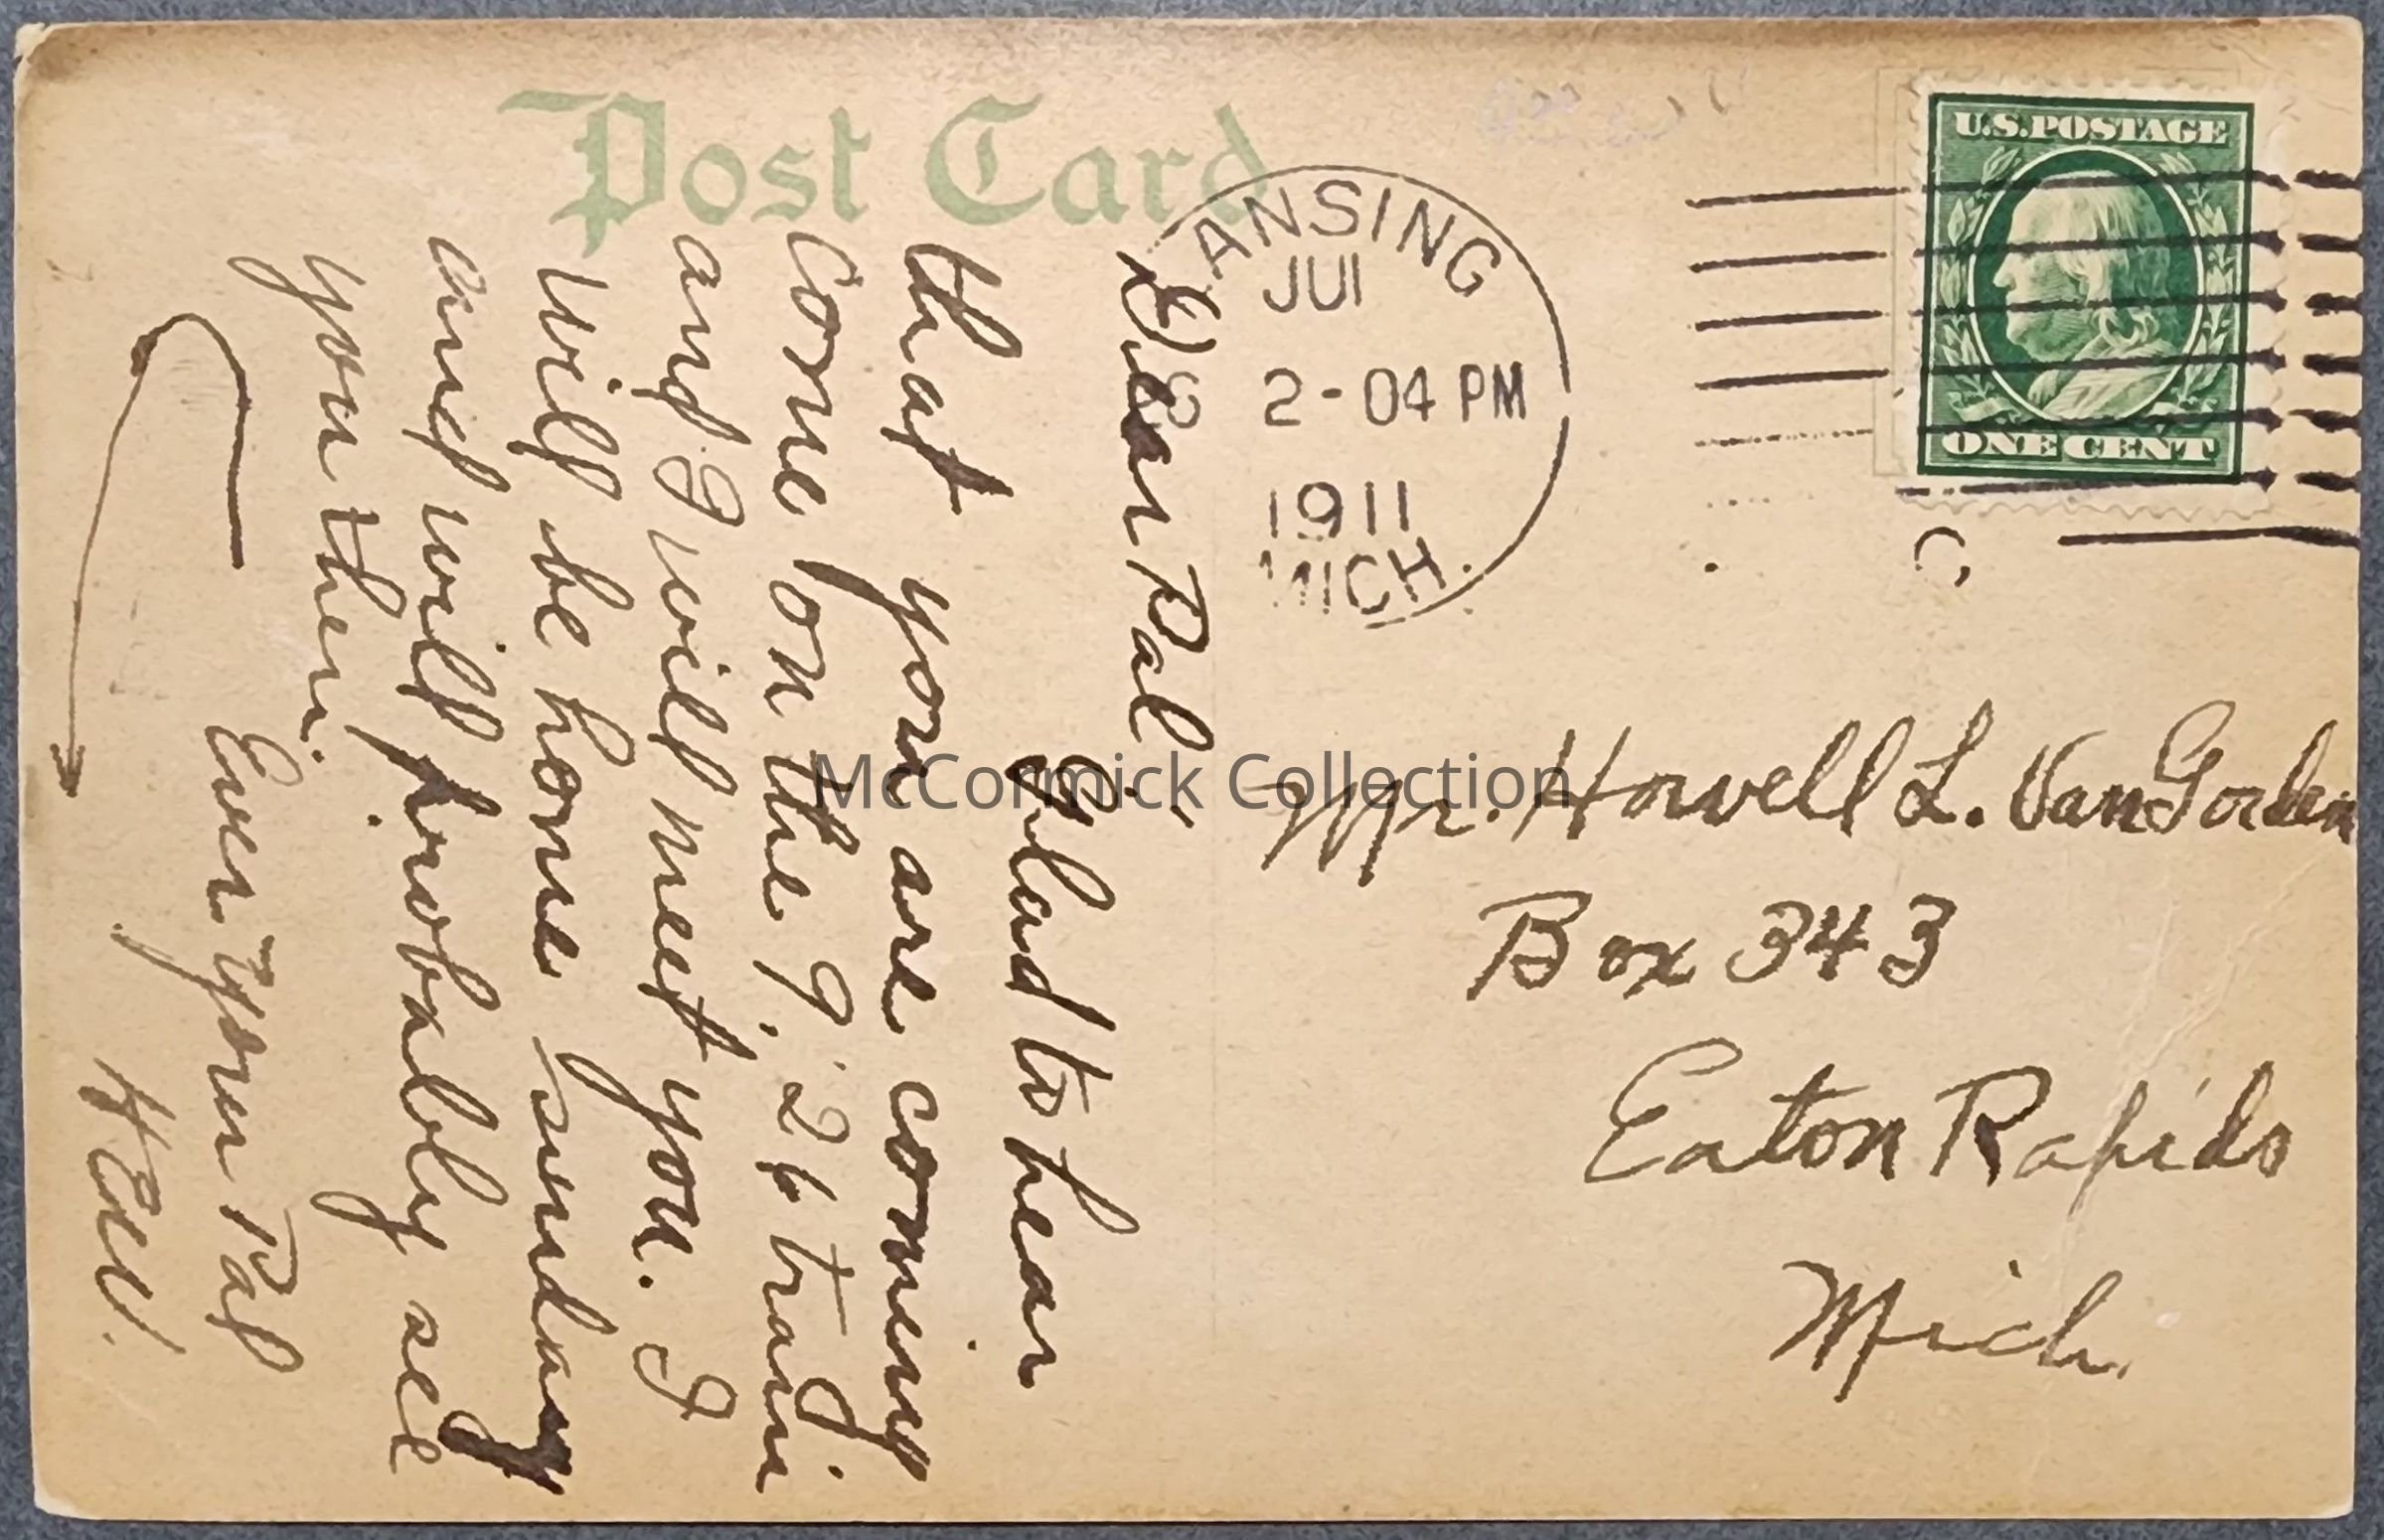 Post Card
U.S.POSTAGE
ONE CENT
ANSING
JUL
2-04 PM
1911
MICH.
Dear Pal:-
Glad to hear
that you are coming.
Come on the 9,26 train
and I will meet you. I
will be home sunday
and will probably see
you then.
Ever Your Pal
Mr. Howell L. VanGorden
Box 343
Eaton Rapids
Mich.
McCormick Collection